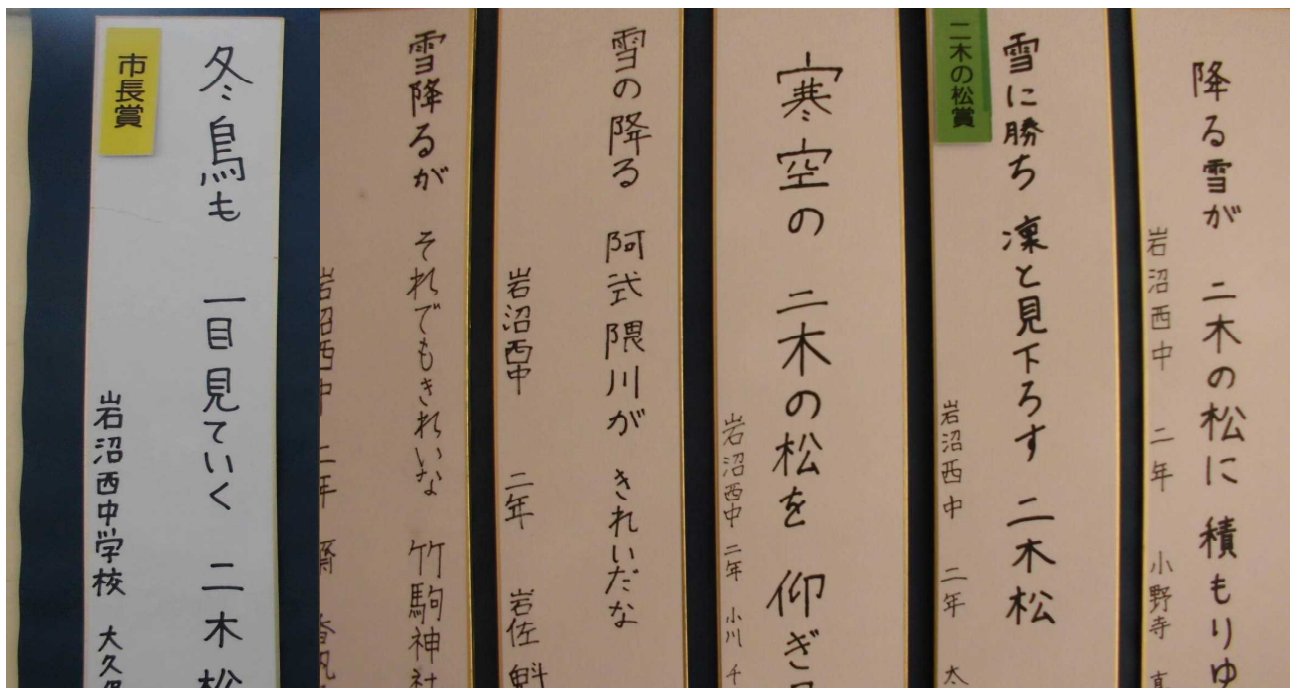 降る雪が 二木の松に 積もりゆ
岩沼西中 二年 小野寺
雪に勝ち 凜と見下ろす 二木松
二木の松賞
岩沼西中 二年 太
寒空の 二木の松を 仰ぎ
岩沼西中 二年 小川 千
雪の降る 阿武隈川が きれいだな
岩沼西中 二年 岩佐 魁
雪降るが それでもきれいな 竹駒神社
岩沼西中 二年
冬鳥も 一目見ていく 二木松
市長賞
岩沼西中学校 大久